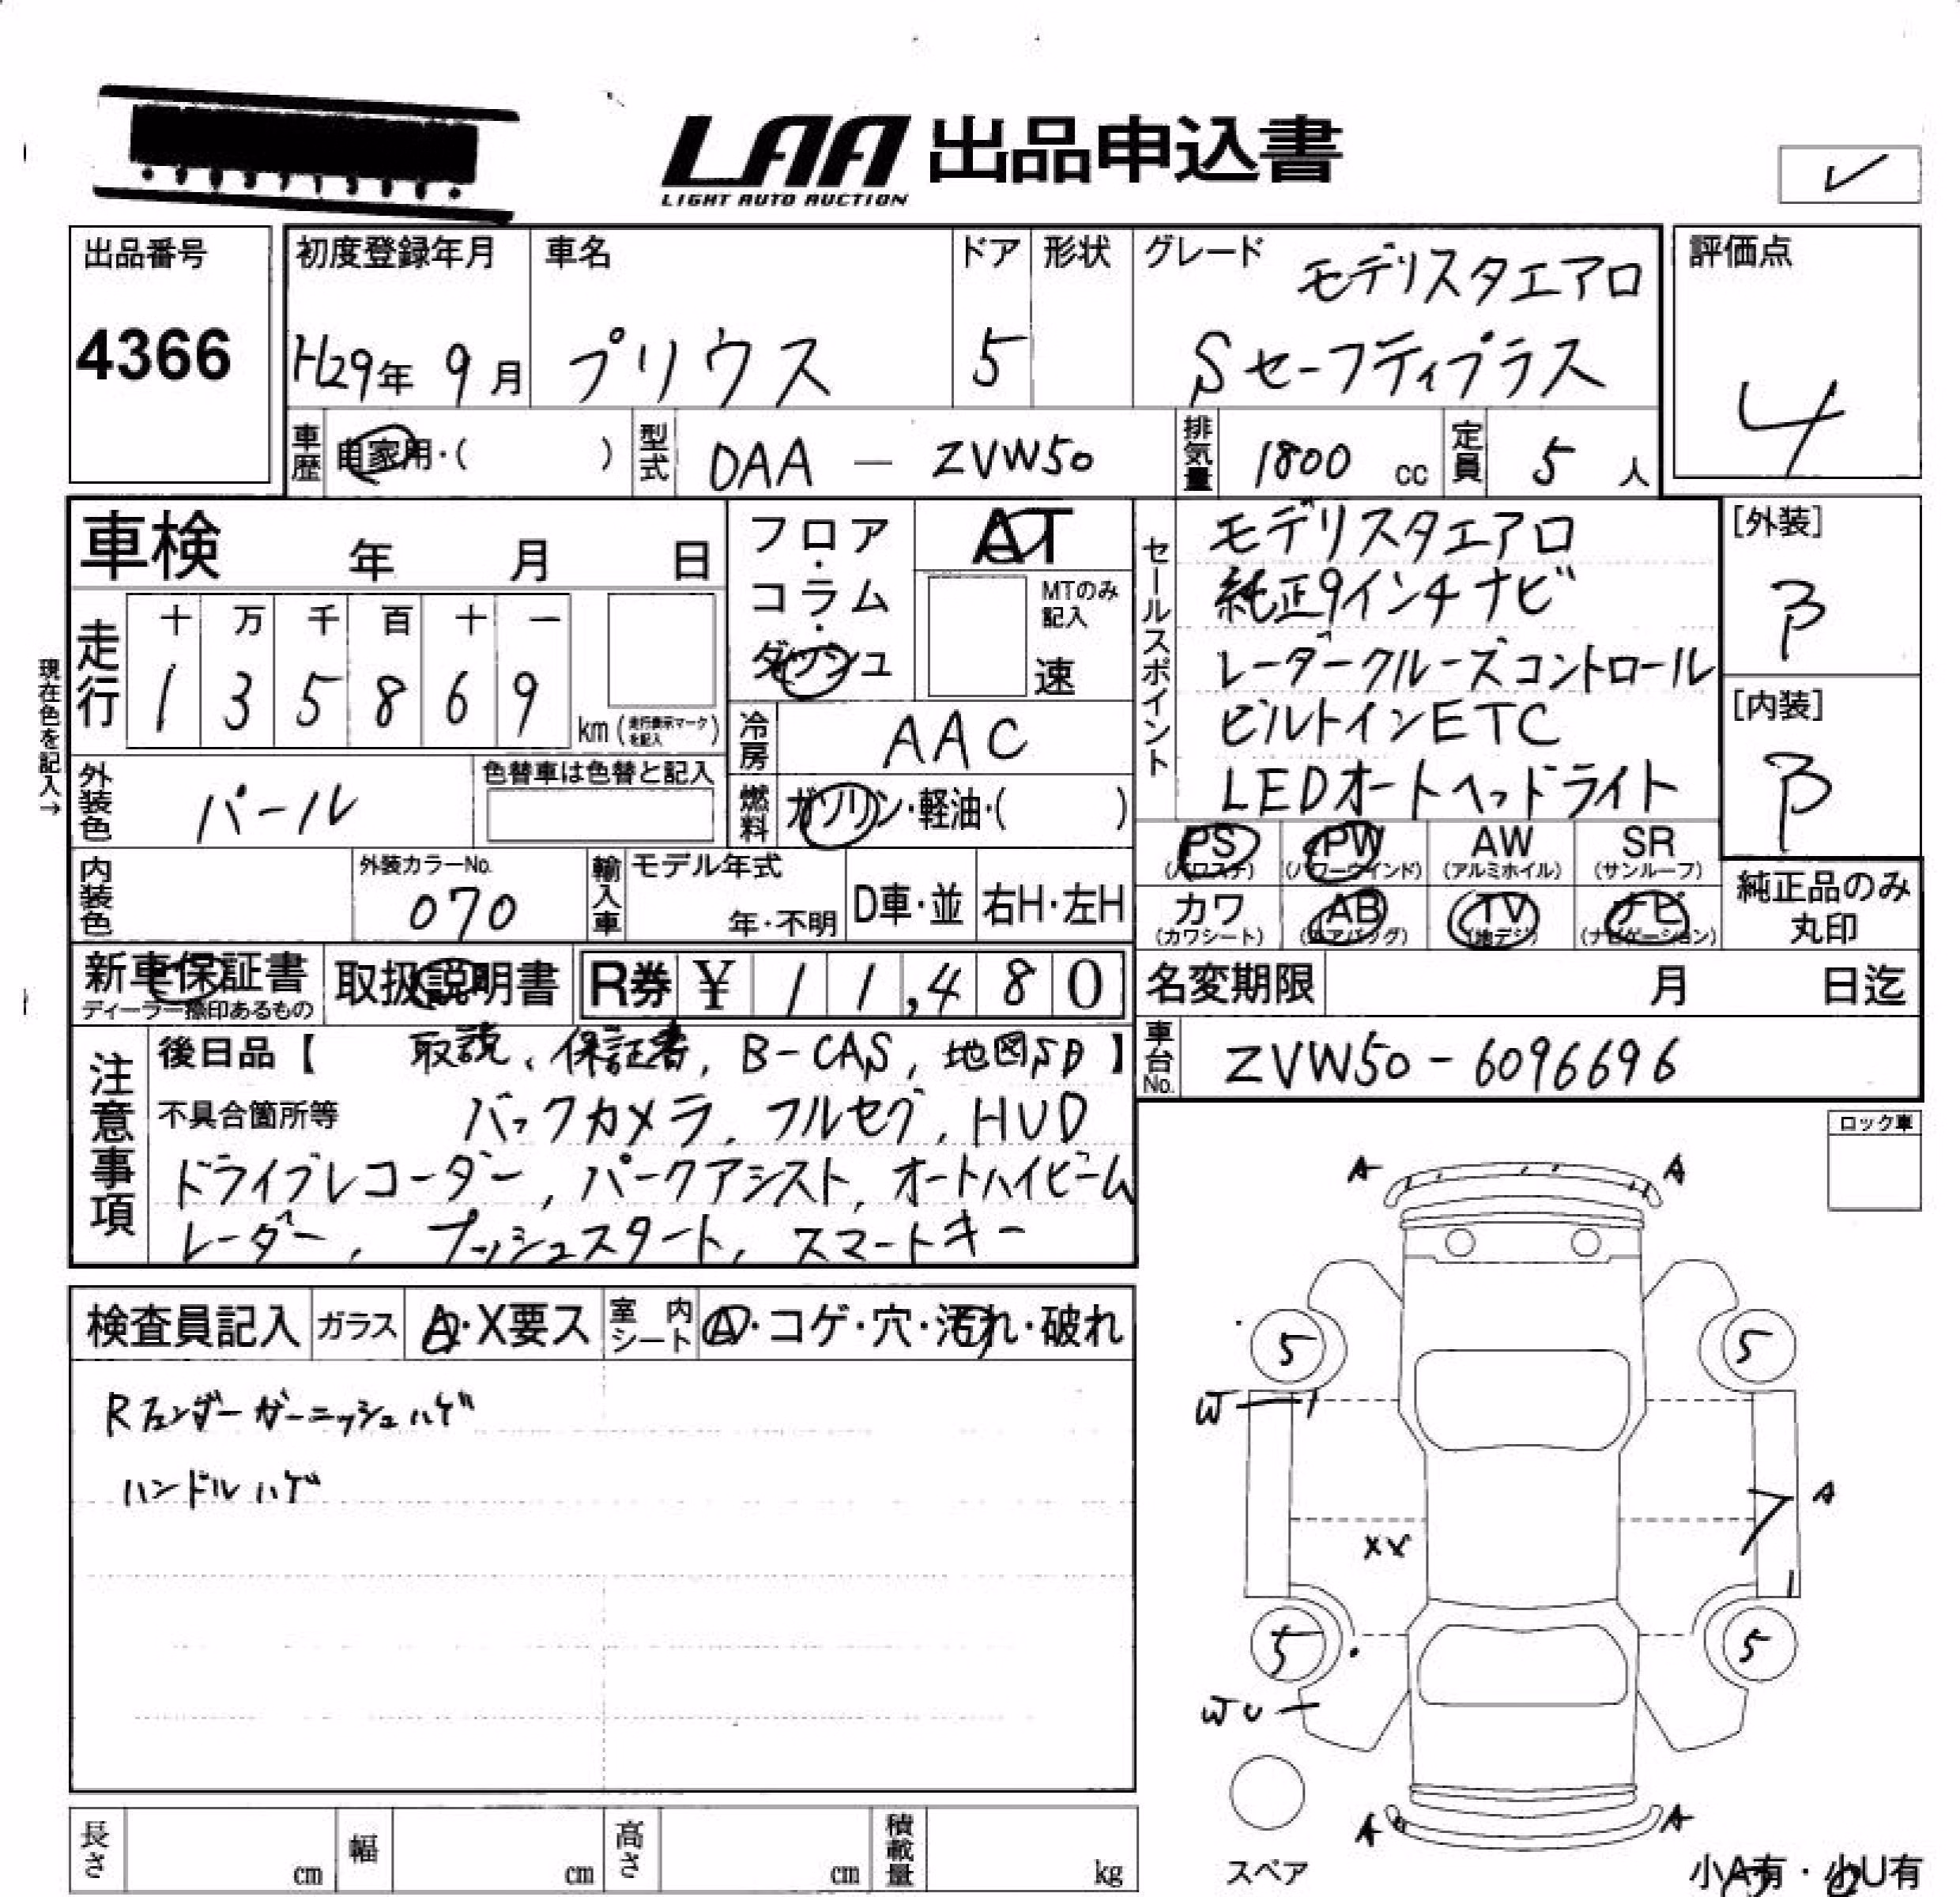 LAA 出品申込書
LIGHT AUTO AUCTION
出品番号
4366
初度登録年月 車名 ドア 形状 グレード モデリスタエアロ
H29年 9月 プリウス 5 Sセーフティプラス
評価点
4
車歴 自家用・( ) 型式 DAA - ZVW50 排気量 1800 cc 定員 5 人
車検 年 月 日
フロア・コラム・ダッシュ
AT
MTのみ記入
速
走行
十 万 千 百 十 一
1 3 5 8 6 9
km (走行表示マークを記入)
現在色を記入→
冷房 AAC
外装色 パール
色替車は色替と記入
燃料 ガソリン・軽油・( )
セールスポイント
モデリスタエアロ
純正9インチナビ
レーダークルーズコントロール
ビルトインETC
LEDオートヘッドライト
[外装]
B
[内装]
B
PS PW AW SR
(パワステ) (パワーウインド) (アルミホイル) (サンルーフ)
カワ AB TV ナビ
(カワシート) (エアバッグ) (地デジ) (ナビゲーション)
純正品のみ
丸印
内装色
外装カラーNo.
070
輸入車 モデル年式
年・不明 D車・並 右H・左H
新車保証書
ディーラー捺印あるもの
取扱説明書
R券 ¥ 11,480
名変期限 月 日迄
車台No. ZVW50-6096696
注意事項
後日品【 取説、保証書, B-CAS, 地図SD 】
不具合箇所等 バックカメラ, フルセグ, HUD
ドライブレコーダー, パークアシスト, オートハイビーム
レーダー, プッシュスタート, スマートキー
検査員記入 ガラス A・X要ス 室内シート A・コゲ・穴・汚れ・破れ
Rフェンダーガーニッシュハゲ
ハンドルハゲ
ロック車
A A
5 5
W
A
XX
5 5
WU
A A
スペア
小A有・小U有
長さ cm 幅 cm 高さ cm 積載量 kg